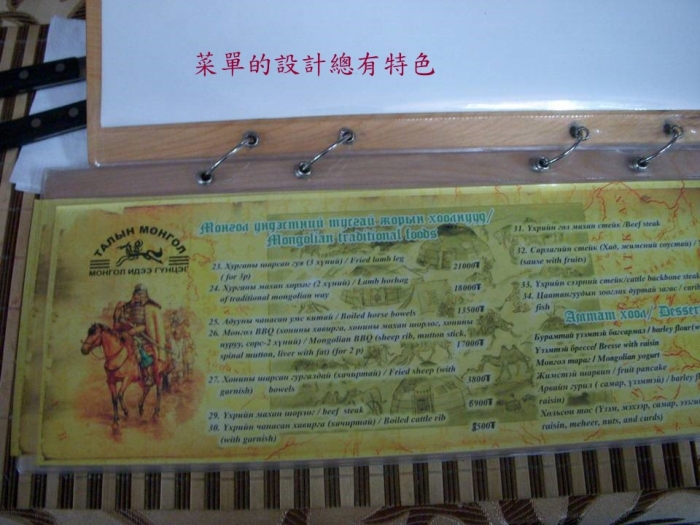 菜單的設計總有特色
ТАЛЫН МОНГОЛ
МОНГОЛ ИДЭЭ ГҮНЦЭГ
Монгол үндэстний тусгай жорын хоолнууд/
Mongolian traditional foods
23. Хурганы шарсан гуя (3 хүний) / Fried lamb leg
( for 3p) 21000₮
24. Хурганы махан хорхог (2 хүний) / Lamb horhog
of traditional mongolian way 18000₮
25. Адууны чанасан умс китай / Boiled horse bowels 13500₮
26. Монгол BBQ (хонины хавирга, хонины махан шорлог, хонины
нуруу, сорс-2 хүний) / Mongolian BBQ (sheep rib, mutton stick,
spinal mutton, liver with fat) (for 2 p) 17000₮
27. Хонины шарсан гургалдай (хачиртай) / Fried sheep (with
garnish) bowels 3800₮
29. Үхрийн махан шорлог / beef steak 6900₮
30. Үхрийн чанасан хавирга (хачиртай) / Boiled cattle rib
(with garnish) 8500₮
31. Үхрийн гол махан стейк /Beef steak
32. Сарлагийн стейк (Хад, жимсний соустай)
(sause with fruits)
33. Үхрийн сээрний стейк/cattle backbone steak
34. Цаатангуудын шоглох дуртай загас /
fish
Амтат хоол/ Desser
Бурамтай үзэмтэй багармал / barley flour
Үзэмтэй бресеґ Breese with raisin
Монгол тараг / Mongolian yogurt
Жимстэй шарвин / fruit pancake
Арвайн гурил ( самар, үзэмтэй) / barley
raisin)
Хольсон тос (Үзэм, мэхээр, самар, ээзгий
raisin, meheer, nuts, and curds)